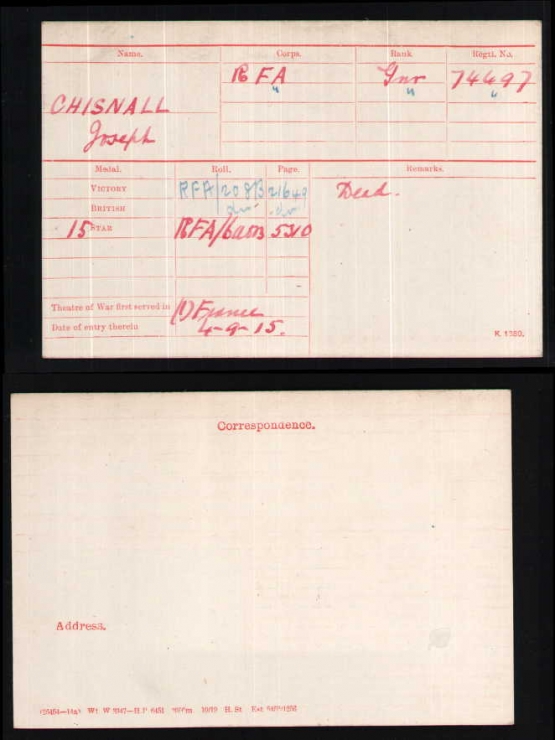 Name. Corps. Rank. Regtl. No.
R F A Gnr 74697
" " "
CHISNALL
Joseph
Medal. Roll. Page. Remarks.
VICTORY RFA/208B 21649 Dead.
BRITISH do do
15 STAR RFA/6 5310
Theatre of War first served in (1) France
Date of entry therein 4-9-15.
K. 1380.
Correspondence.
Address.
Wt W 5347—H P 6451 10/19 H. St